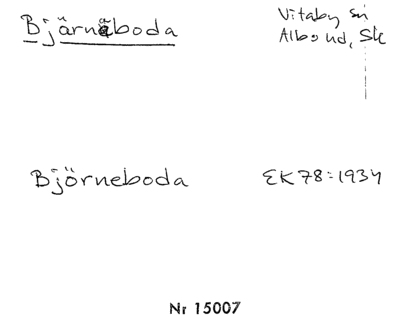 Bjärnäboda
Vitaby sn
Albo hd, Sk
Björneboda
EK 78:1934
Nr 15007